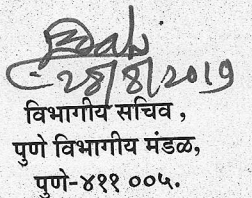 28/8/2019
विभागीय सचिव,
पुणे विभागीय मंडळ,
पुणे-४११ ००५.